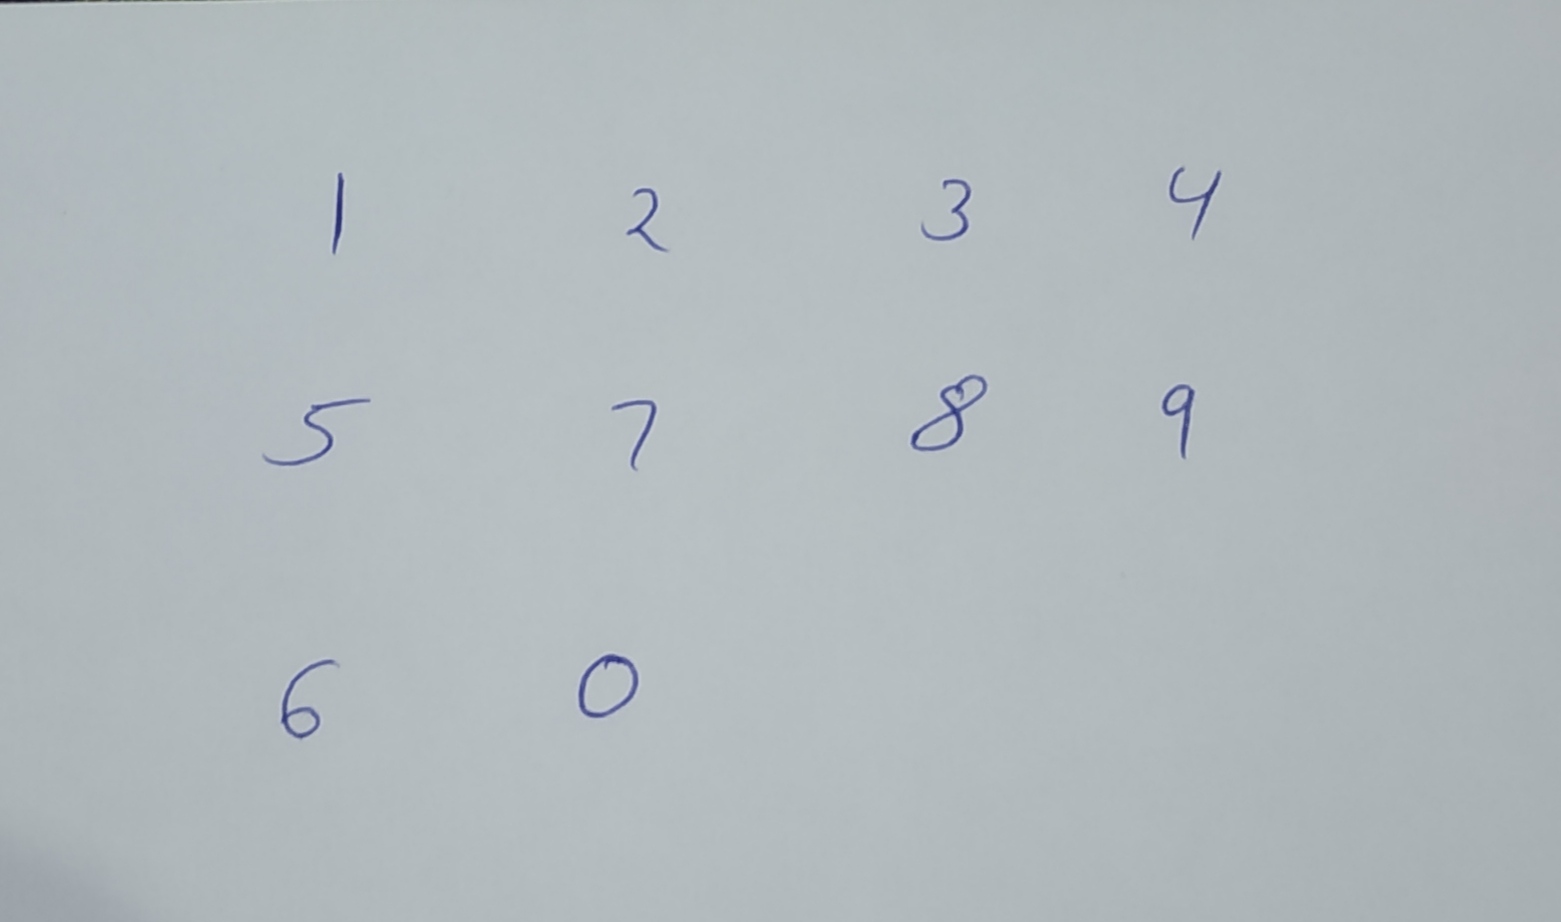 1 2 3 4
5 7 8 9
6 0